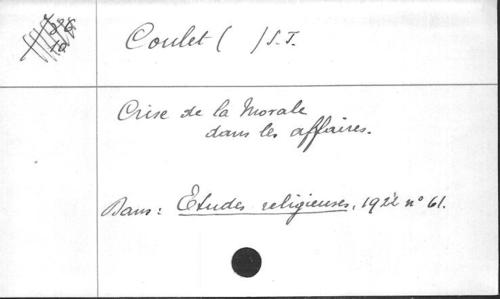 Coulet ( ) S.J.
Crise de la Morale
dans les affaires.
Dans: Etudes religieuses, 1922 n° 61.